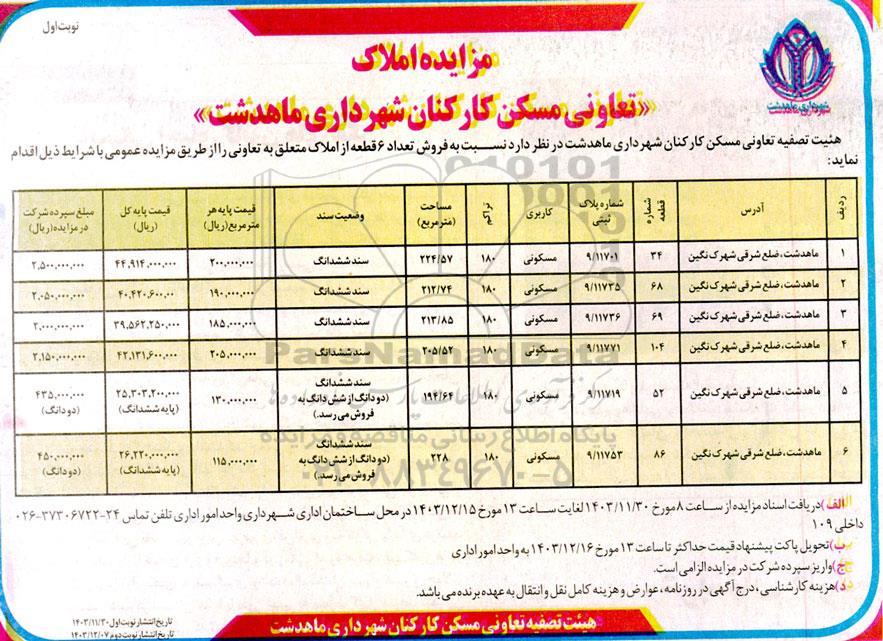 نوبت اول
شهرداری ماهدشت
مزایده املاک
«تعاونی مسکن کارکنان شهرداری ماهدشت»
هئیت تصفیه تعاونی مسکن کارکنان شهرداری ماهدشت در نظر دارد نسبت به فروش تعداد ۶ قطعه از املاک متعلق به تعاونی را از طریق مزایده عمومی با شرایط ذیل اقدام
نماید:
ردیف | آدرس | شماره قطعه | شماره پلاک ثبتی | کاربری | تراکم | مساحت (مترمربع) | وضعیت سند | قیمت پایه هر مترمربع (ریال) | قیمت پایه کل (ریال) | مبلغ سپرده شرکت در مزایده (ریال)
۱ | ماهدشت، ضلع شرقی شهرک نگین | ۳۴ | ۹/۱۱۷۰۱ | مسکونی | ۱۸۰ | ۲۲۴/۵۷ | سند ششدانگ | ۲۰۰,۰۰۰,۰۰۰ | ۴۴,۹۱۴,۰۰۰,۰۰۰ | ۲,۵۰۰,۰۰۰,۰۰۰
۲ | ماهدشت، ضلع شرقی شهرک نگین | ۶۸ | ۹/۱۱۷۳۵ | مسکونی | ۱۸۰ | ۲۱۲/۷۴ | سند ششدانگ | ۱۹۰,۰۰۰,۰۰۰ | ۴۰,۴۲۰,۶۰۰,۰۰ | ۲,۰۵۰,۰۰۰,۰۰۰
۳ | ماهدشت، ضلع شرقی شهرک نگین | ۶۹ | ۹/۱۱۷۳۶ | مسکونی | ۱۸۰ | ۲۱۳/۸۵ | سند ششدانگ | ۱۸۵,۰۰۰,۰۰۰ | ۳۹,۵۶۲,۲۵۰,۰۰۰ | ۲,۰۰۰,۰۰۰,۰۰۰
۴ | ماهدشت، ضلع شرقی شهرک نگین | ۱۰۴ | ۹/۱۱۷۷۱ | مسکونی | ۱۸۰ | ۲۰۵/۵۲ | سند ششدانگ | ۲۰۵,۰۰۰,۰۰۰ | ۴۲,۱۳۱,۶۰۰,۰۰۰ | ۲,۱۵۰,۰۰۰,۰۰۰
۵ | ماهدشت، ضلع شرقی شهرک نگین | ۵۲ | ۹/۱۱۷۱۹ | مسکونی | ۱۸۰ | ۱۹۴/۶۴ | سند ششدانگ (دو دانگ از شش دانگ به فروش می رسد.) | ۱۳۰,۰۰۰,۰۰۰ | ۲۵,۳۰۳,۲۰۰,۰۰۰ (پایه ششدانگ) | ۴۳۵,۰۰۰,۰۰۰ (دو دانگ)
۶ | ماهدشت، ضلع شرقی شهرک نگین | ۸۶ | ۹/۱۱۷۵۳ | مسکونی | ۱۸۰ | ۲۲۸ | سند ششدانگ (دو دانگ از شش دانگ به فروش می رسد.) | ۱۱۵,۰۰۰,۰۰۰ | ۲۶,۲۲۰,۰۰۰,۰۰۰ (پایه ششدانگ) | ۴۵۰,۰۰۰,۰۰۰ (دو دانگ)
ParsNamadData
پایگاه اطلاع رسانی مناقصه و مزایده
الف) دریافت اسناد مزایده از ساعت ۸ مورخ ۱۴۰۳/۱۱/۳۰ لغایت ساعت ۱۳ مورخ ۱۴۰۳/۱۲/۱۵ در محل ساختمان اداری شهرداری واحد امور اداری تلفن تماس ۲۴-۰۲۶-۳۷۳۰۶۷۲۲
داخلی ۱۰۹
ب) تحویل پاکت پیشنهاد قیمت حداکثر تا ساعت ۱۳ مورخ ۱۴۰۳/۱۲/۱۶ به واحد امور اداری
ج) واریز سپرده شرکت در مزایده الزامی است.
د) هزینه کارشناسی، درج آگهی در روزنامه، عوارض و هزینه کامل نقل و انتقال به عهده برنده می باشد.
هیئت تصفیه تعاونی مسکن کارکنان شهرداری ماهدشت
تاریخ انتشار نوبت اول ۱۴۰۳/۱۱/۳۰
تاریخ انتشار نوبت دوم ۱۴۰۳/۱۲/۰۷